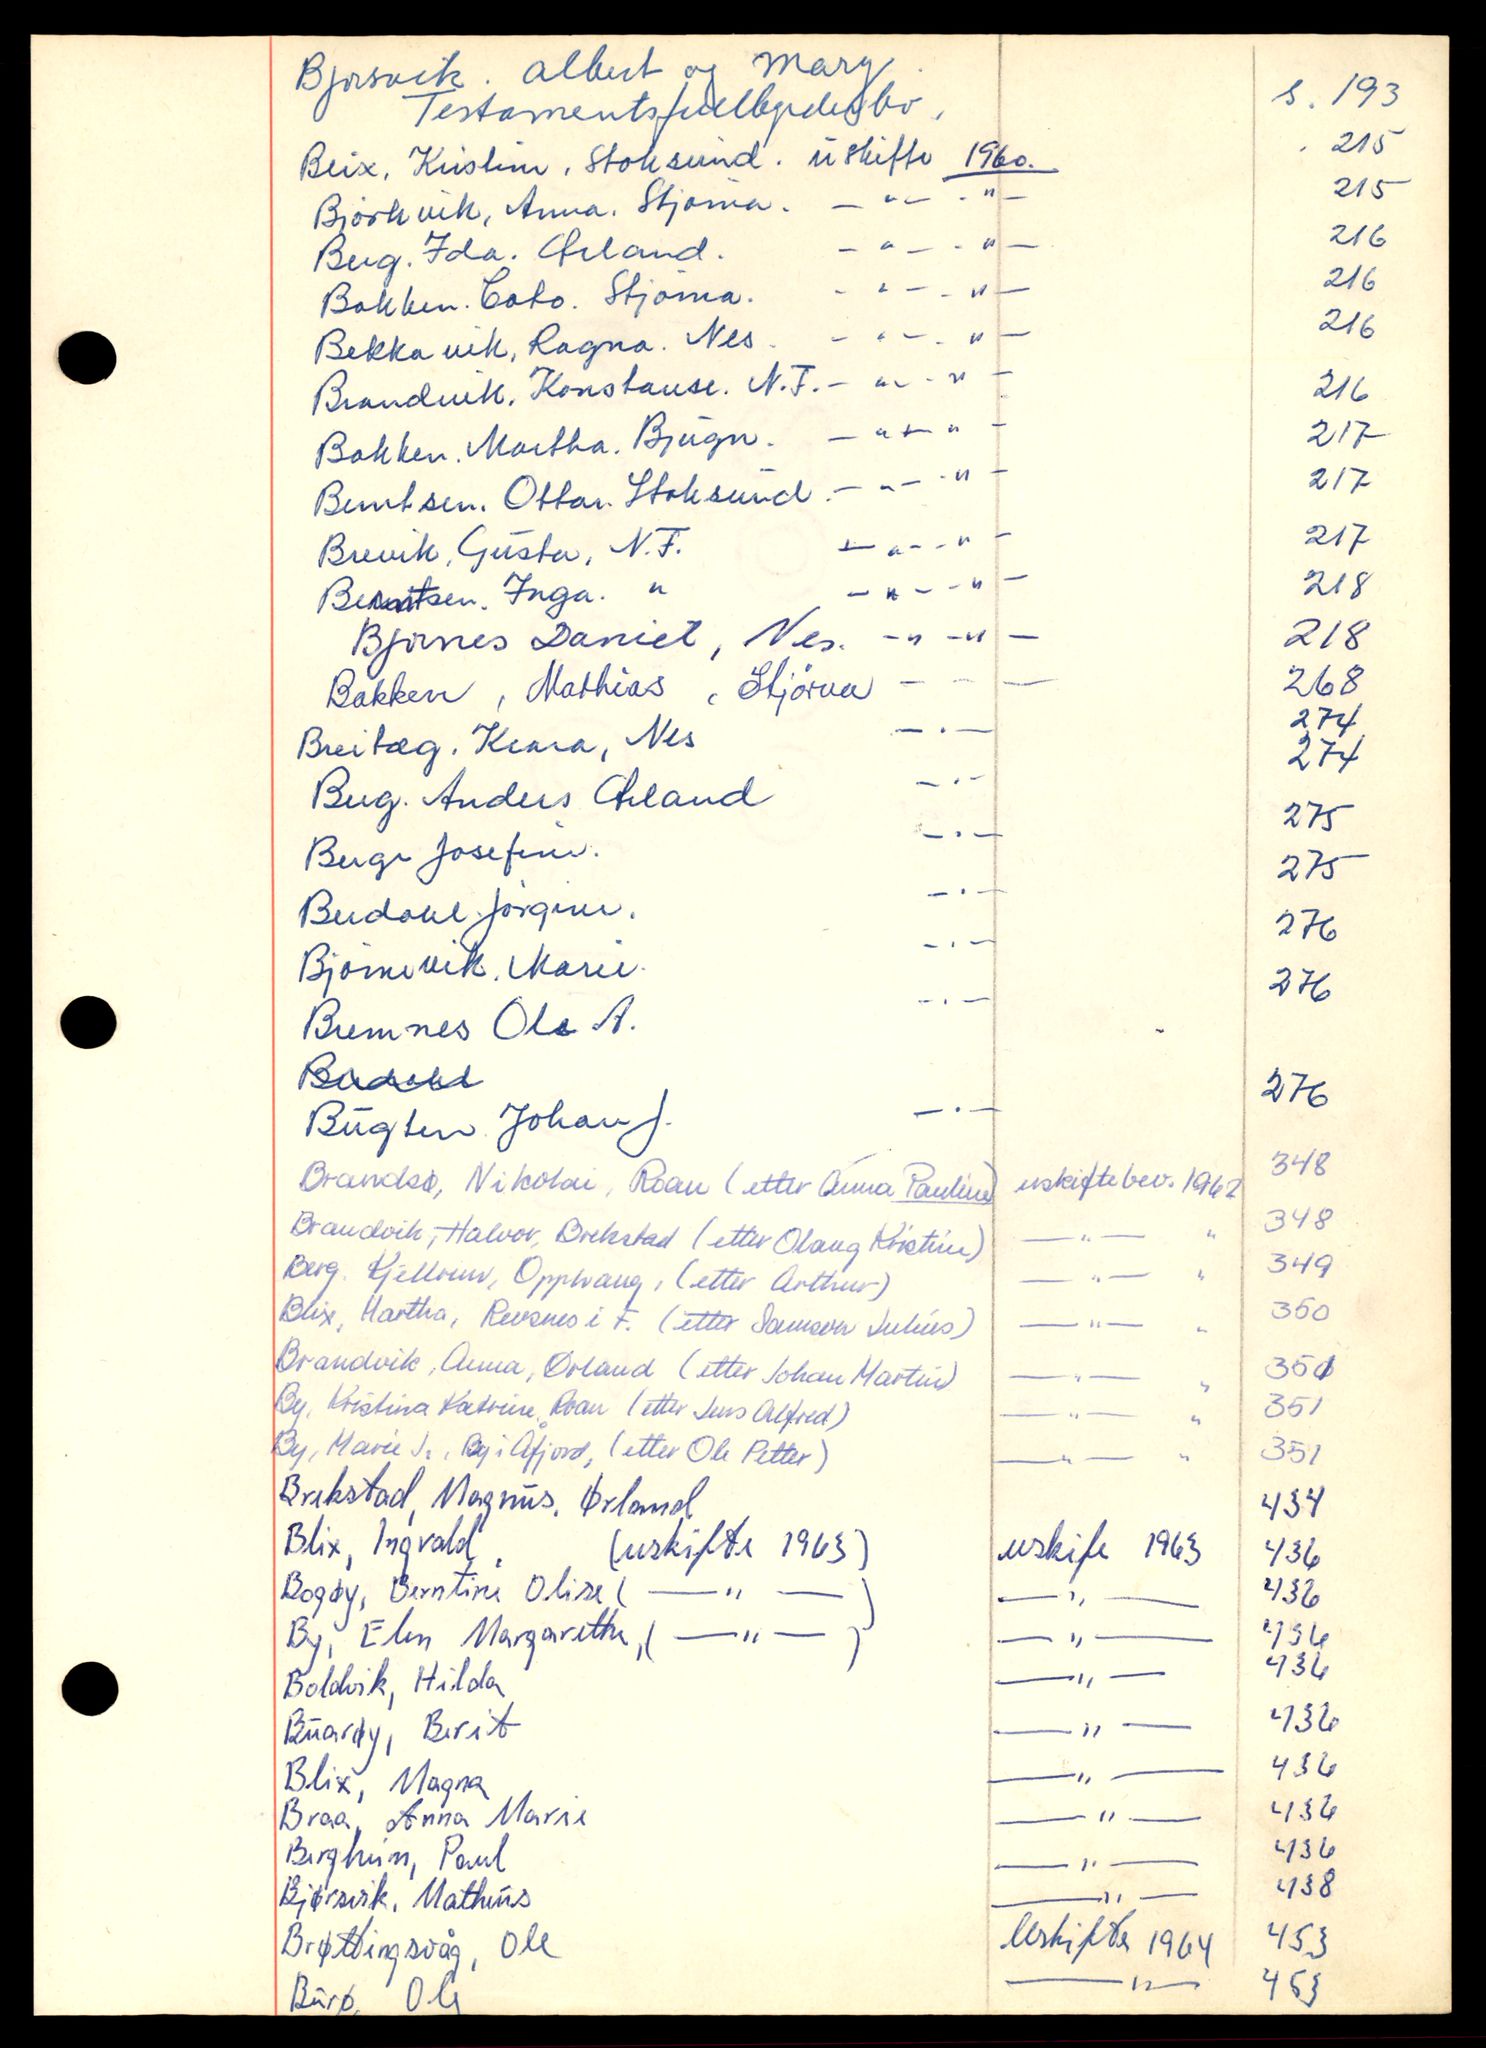 Bjørsvik. Albert og Mary. s. 193
Testamentsfullbyrdelsbo.
Blix, Kristine, Stoksund. uskifte 1960. 215
Björkvik, Anna. Stjörna. — " — . " — 215
Berg. Ida. Ørland. — " — . " — 216
Bakken. Cato. Stjörna. — " — . " — 216
Bekkavik, Ragna. Nes. — " — . " — 216
Brandvik. Konstanse. N.F. — " — . " — 216
Bakken. Martha. Bjugn. — " — " — 217
Berntsen. Ottar. Stoksund. — " — . " — 217
Brevik, Gusta, N.F. — " — . " — 217
Berntsen. Inga. " — " — . " — 218
Bjørnes Daniel, Nes. — " — " — 218
Bakken, Mathias, Stjörna — — — 268
Breitæg. Klara, Nes — . — 274
Berg. Anders Ørland — . — 274
Berge Josefine. — . — 275
Berdahl Jörgine. — . — 275
Björnevik. Marie. — . — 276
Bremnes Ole A. — . — 276
Bugten Johan J. — . — 276
Brandsø, Nikolai, Roan (etter Anna Pauline) uskiftebev. 1962 348
Brandvik, Halvor, Brekstad (etter Olaug Kristine) — " — " 348
Berg. Kjellrun, Opphaug, (etter Arthur) — " — " 349
Blix, Martha, Revsnes i F. (etter Samson Julius) — " — " 350
Brandvik, Anna, Ørland (etter Johan Martin) — " — " 350
By, Kristina Katrine, Roan (etter Jens Alfred) — " — " 351
By, Marie J., By i Åfjord, (etter Ole Petter) — " — " 351
Brekstad, Magnus, Ørland 434
Blix, Ingvald, (uskifte 1963) uskifte 1963 436
Bogøy, Berntine Olise ( — " — ) — " — 436
By, Elen Margarethe, ( — " — ) — " — 436
Boldvik, Hilda — " — 436
Buarøy, Berit — " — 436
Blix, Magna — " — 436
Braa, Anna Marie — " — 436
Berghim, Paul — " — 436
Bjørsvik, Mathius — " — 438
Brøttingsvåg, Ole Uskifte 1964 453
Burø, Ole — " — 453